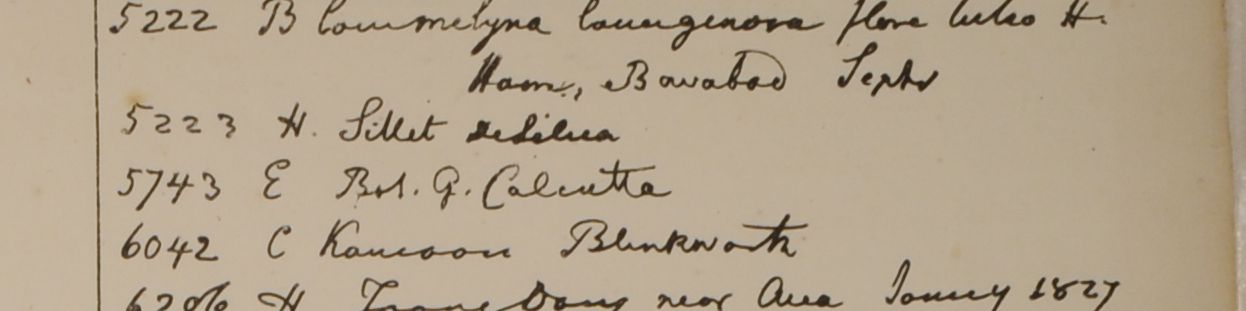 5222 B Commelyna flore luteo H.
Ham., Bavabad Septr
5223 H. Sillet deSilva
5743 E Bot. G. Calcutta
6042 C Kamaon Blinkworth
H near Ava 1827